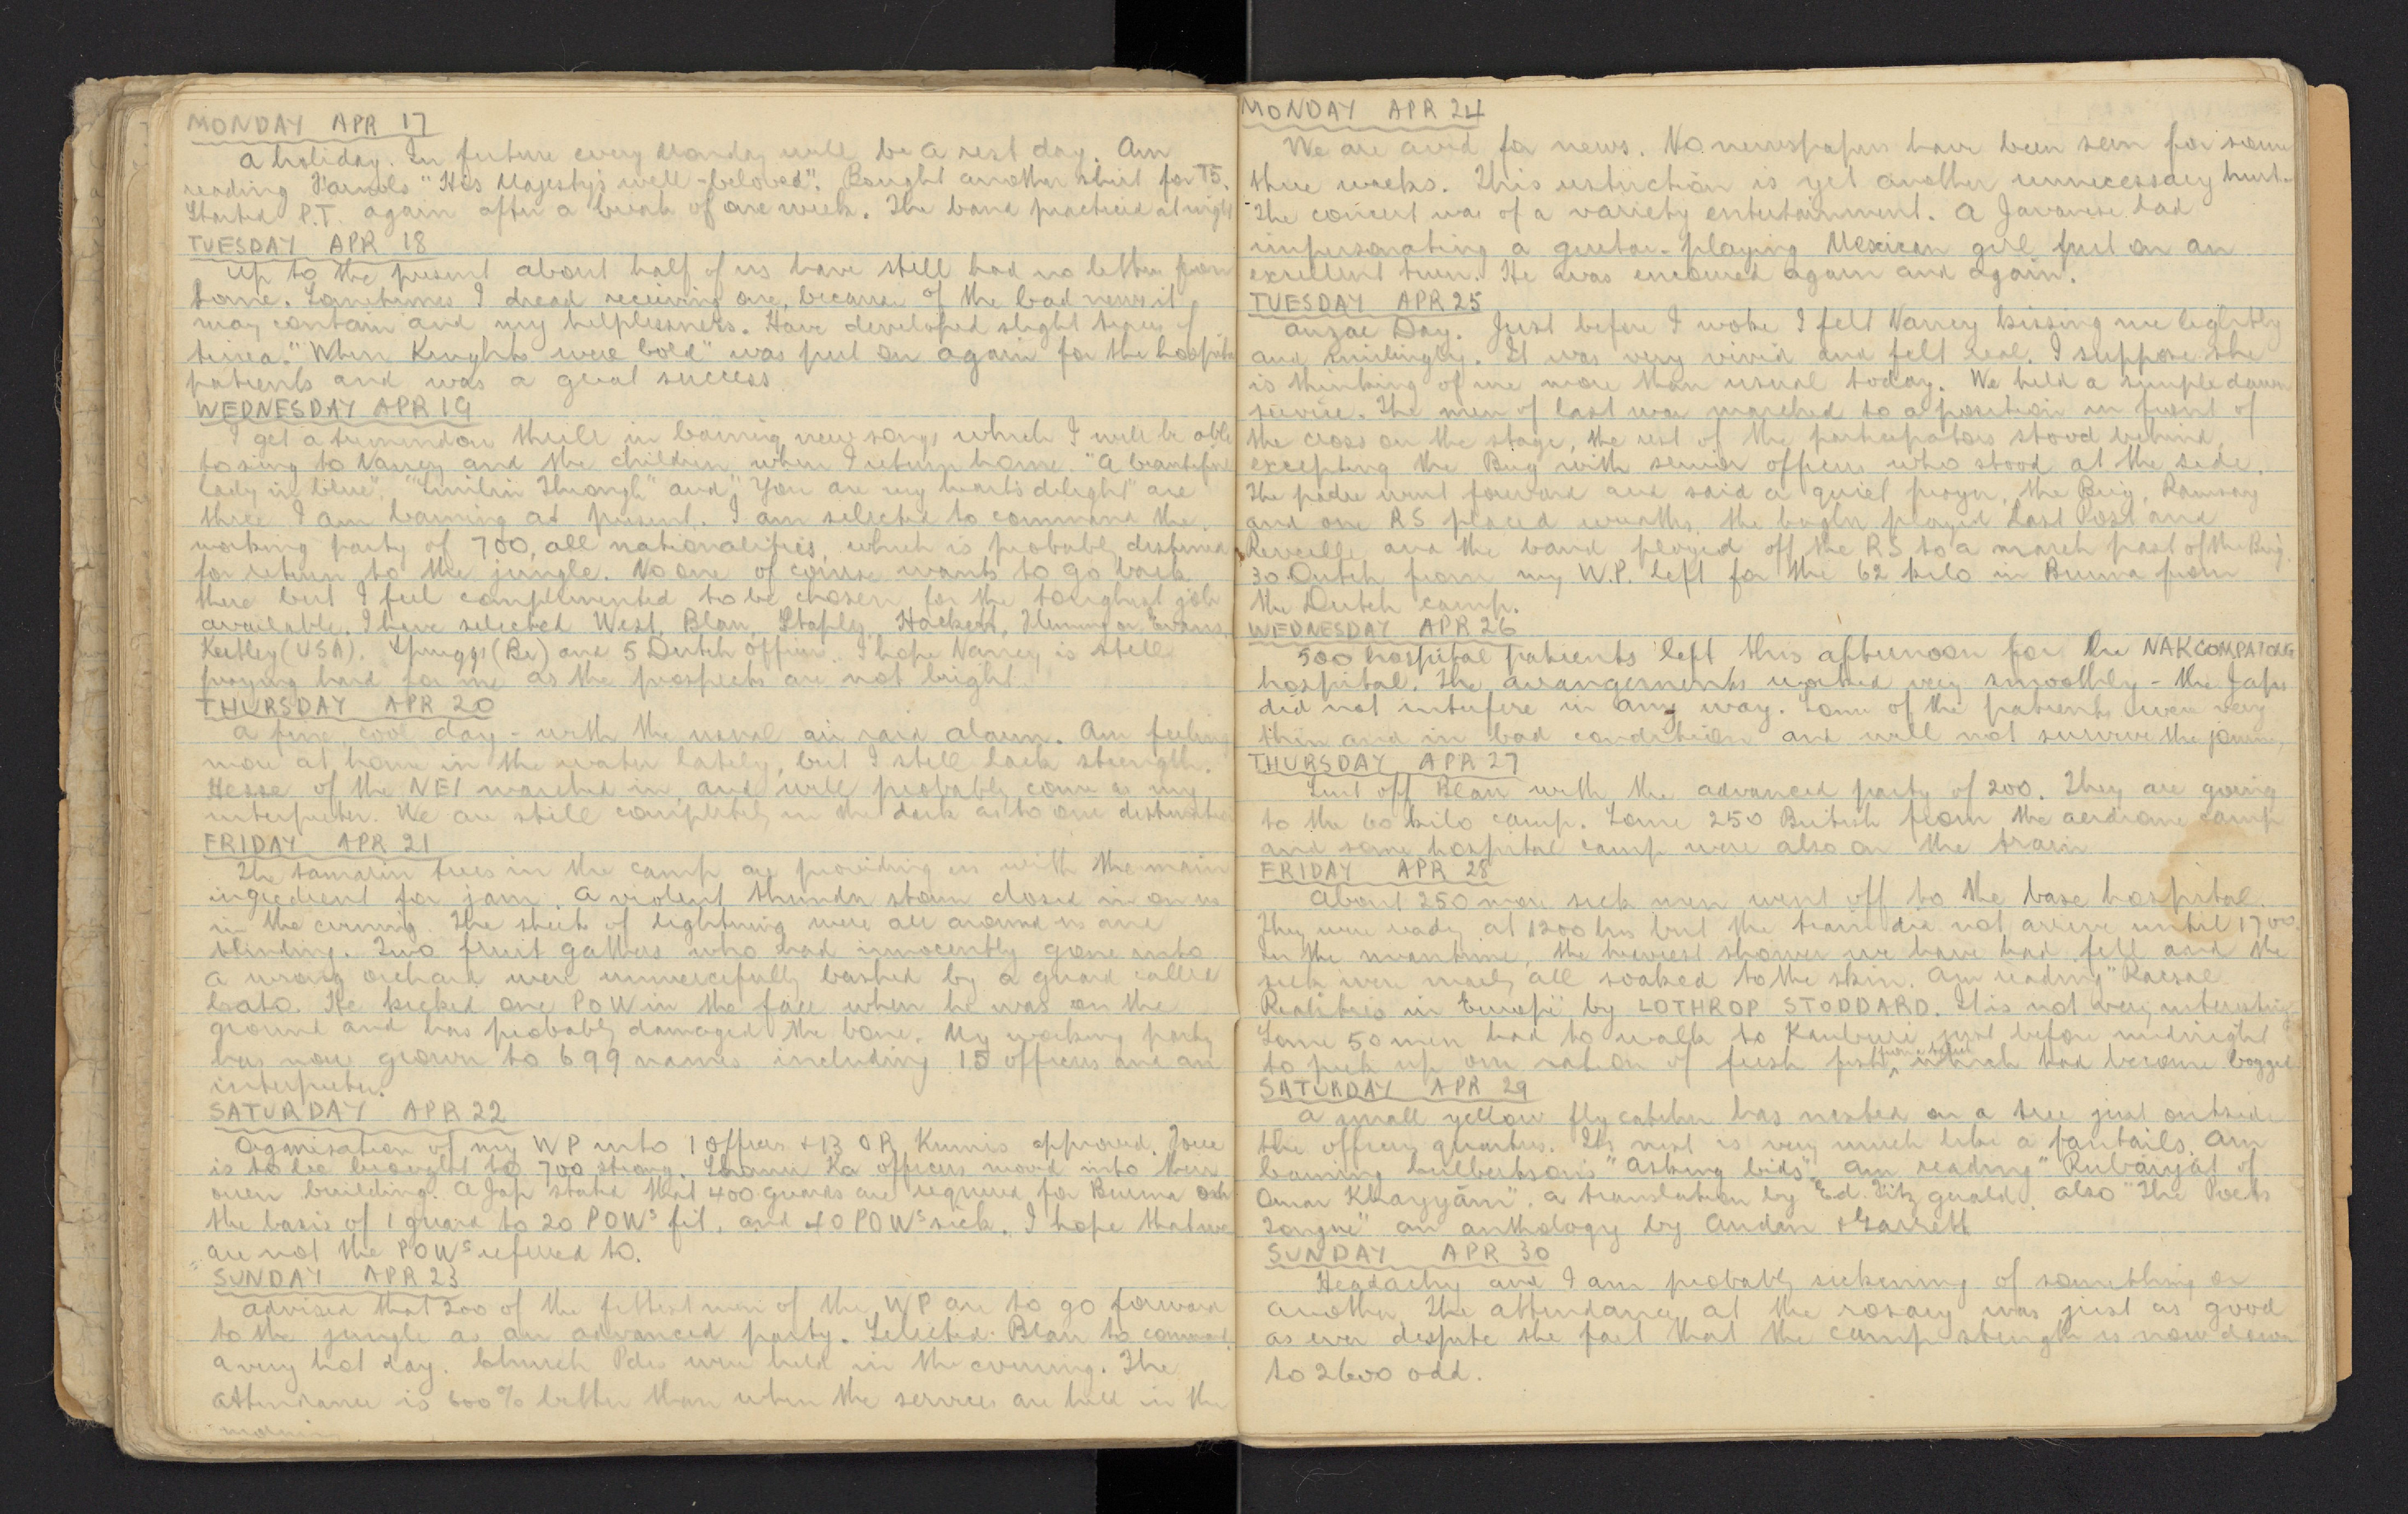 MONDAY APR 17
A holiday. In future every Monday will be a rest day. Am
reading Farnol's "His Majesty's well-beloved". Bought another shirt for T5.
Started P.T. again after a break of one week. The band practiced at night
TUESDAY APR 18
Up to the present about half of us have still had no letter from
home. Sometimes I dread receiving one, because of the bad news it
may contain and my helplessness. Have developed slight traces of
tinea. "When Knights were bold" was put on again for the hospital
patients and was a great success.
WEDNESDAY APR 19
I get a tremendous thrill in learning new songs which I will be able
to sing to Nancy and the children when I return home. "A beautiful
lady in blue", "Smilin Through" and "You are my heart's delight" are
three I am learning at present. I am selected to command the
working party of 700, all nationalities, which is probably destined
for return to the jungle. No one of course wants to go back
there but I feel complimented to be chosen for the toughest job
available. I have selected West, Blau, Staply, Hackett, Fleming or Evans,
Keetley (USA), Spruggs (Br) and 5 Dutch officers. I hope Nancy is still
praying hard for me as the prospects are not bright
THURSDAY APR 20
A fine, cool day - with the usual air raid alarm. Am feeling
more at home in the water lately, but I still lack strength.
Hesse of the NEI marched in and will probably come as my
interpreter. We are still completely in the dark as to our destination
FRIDAY APR 21
The tamarin trees in the camp are providing us with the main
ingredient for jam. A violent thunder storm closed in on us
in the evening. The sheets of lightning were all around us and
blinding. Two fruit gatherers who had innocently gone into
a wrong orchard were unmercifully bashed by a guard called
Cato. He kicked one POW in the face when he was on the
ground and has probably damaged the bone. My working party
has now grown to 699 names including 15 officers and an
interpreter.
SATURDAY APR 22
Orgnisation of my WP into 1 officer + 13 OR Kumis approved. Force
is to be brought to 700 strong. officers moved into their
own building. A Jap stated that 400 guards are required for Burma on
the basis of 1 guard to 20 POWs fit, and 40 POWs sick. I hope that we
are not the POWs referred to.
SUNDAY APR 23
Advised that 200 of the fittest men of the WP are to go forward
to the jungle as an advanced party. Selected Blau to command.
A very hot day. Church Pdes were held in the evening. The
attendance is 600% better than when the services are held in the
morning
MONDAY APR 24
We are avid for news. No newspapers have been seen for some
three weeks. This restriction is yet another unnecessary hurt.
The concert was of a variety entertainment. A Javanese lad
impersonating a guitar-playing Mexican girl put on an
excellent turn. He was encored again and again.
TUESDAY APR 25
Anzac Day. Just before I woke I felt Nancy kissing me lightly
and smilingly. It was very vivid and felt real. I suppose she
is thinking of me more than usual today. We held a simple dawn
service. The men of last war marched to a position in front of
the cross on the stage, the rest of the participators stood behind,
excepting the Brig with senior officers who stood at the side.
The padre went forward and said a quiet prayer, the Brig, Ramsay
and one RS placed wreaths, the bugler played Last Post and
Reveille and the band played off the RS to a march past of the Brig.
30 Dutch from my W.P. left for the 62 kilo in Burma from
the Dutch camp.
WEDNESDAY APR 26
500 hospital patients left this afternoon for the NAKCOMPATONG
hospital. The arrangements worked very smoothly - the Japs
did not interfere in any way. Some of the patients were very
thin and in bad condition and will not survive the journey
THURSDAY APR 27
Sent off Blau with the advanced party of 200. They are going
to the 60 kilo camp. Some 250 British from the aerdrome camp
and some hospital camp were also on the train
FRIDAY APR 28
About 250 more sick men went off to the base hospital.
They were ready at 1200 hrs but the train did not arrive until 1700.
In the meantime, the heaviest shower we have had fell and the
sick were nearly all soaked to the skin. Am reading "Racial
Realities in Europe" by LOTHROP STODDARD. It is not very interesting
Some 50 men had to walk to Kanburi just before midnight
to pick up our ration of fresh fish, which had become bogged
SATURDAY APR 29
A small yellow fly catcher has nested on a tree just outside
the officers quarters. Its nest is very much like a fantails. Am
learning Culbertson's "Asking bids". Am reading "Rubáiyát of
Omar Khayyám", a translation by Ed. Fitzgerald, also "The Poets
Tongue" an anthology by Auden & Garrett
SUNDAY APR 30
Headachy and I am probably sickening of something or
another. The attendance at the rosary was just as good
as ever despite the fact that the camp strength is now down
to 2600 odd.